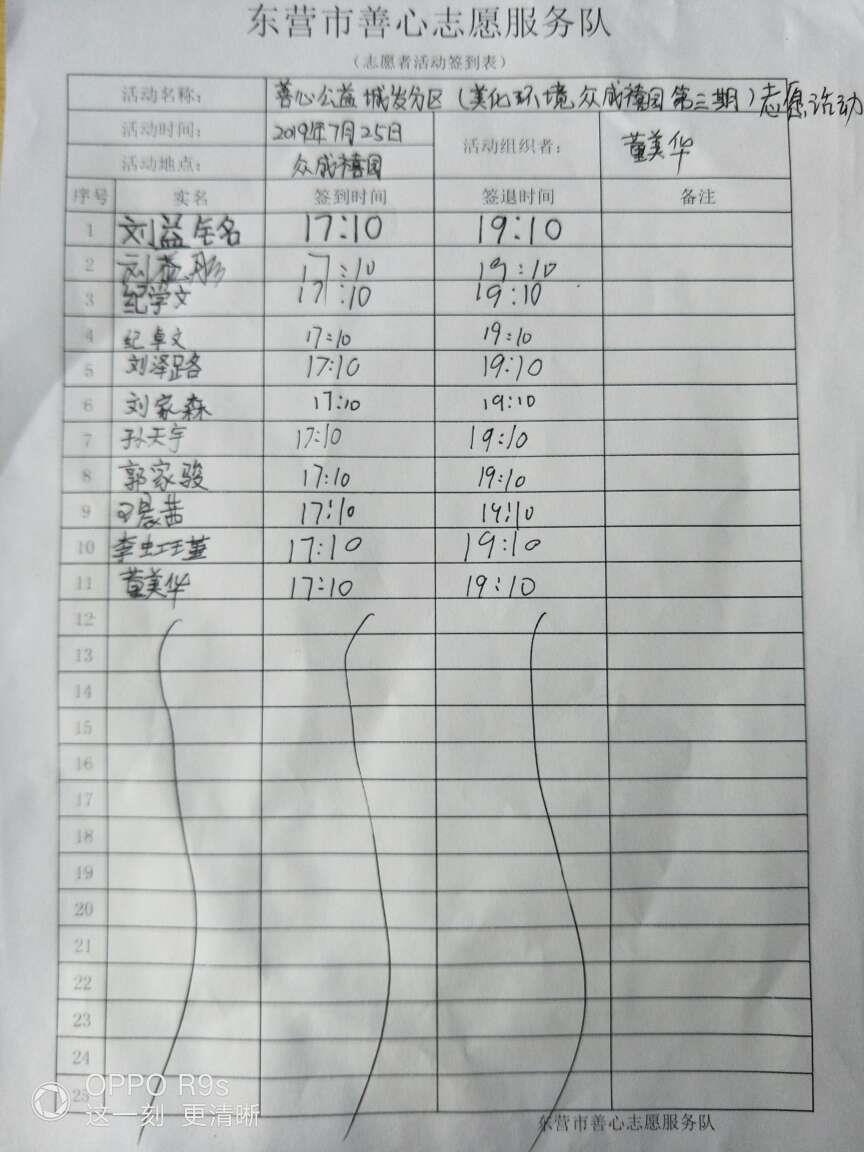 东营市善心志愿服务队
（志愿者活动签到表）
活动名称： 善心公益城发分区（美化环境众成禧园第三期）志愿活动
活动时间： 2019年7月25日 活动组织者： 董美华
活动地点： 众成禧园
序号 实名 签到时间 签退时间 备注
1 刘益铭 17:10 19:10
2 刘益彤 17:10 19:10
3 纪学文 17:10 19:10
4 纪卓文 17:10 19:10
5 刘泽璐 17:10 19:10
6 刘家森 17:10 19:10
7 孙天宇 17:10 19:10
8 郭家骏 17:10 19:10
9 晨茜 17:10 19:10
10 李虹瑾 17:10 19:10
11 董美华 17:10 19:10
12
13
14
15
16
17
18
19
20
21
22
23
24
25
OPPO R9s
这一刻 更清晰
东营市善心志愿服务队